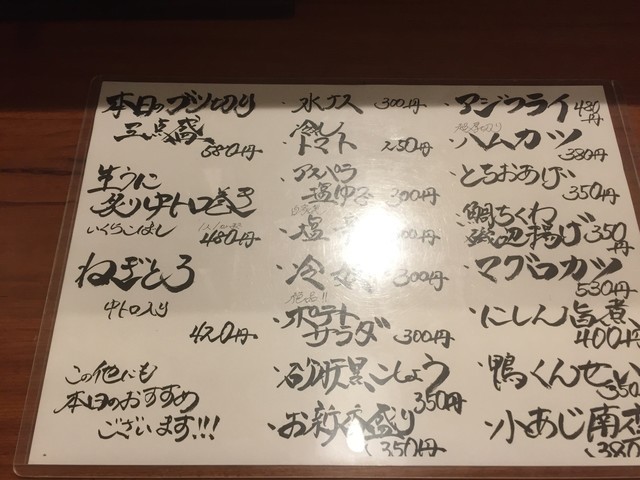 本日のブツ切り
三点盛
680円
生うに
炙り中トロ巻き
いくらこぼし
480円
ねぎとろ
中トロ入り
420円
この他にも
本日のおすすめ
ございます!!!
・水ナス 300円
・冷し
トマト 250円
・アスパラ
塩ゆで 300円
・塩
円
・冷 300円
・ポテト
サラダ 300円
・砂肝黒こしょう
350円
・お新香盛り
350円
・アジフライ 430円
・ハムカツ
380円
・とちおあげ
350円
・鯛ちくわ
磯辺揚げ 350円
・マグロカツ
530円
・にしん旨煮
400円
・鴨くんせい
350
・小あじ南
380